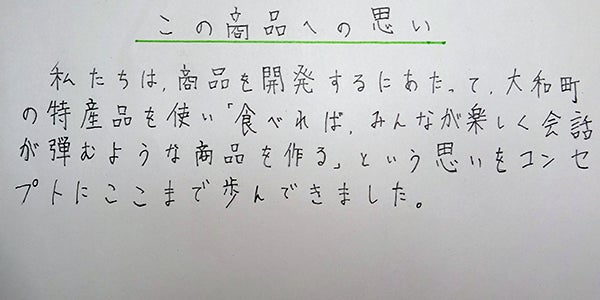 この商品への思い
私たちは、商品を開発するにあたって、大和町
の特産品を使い「食べれば、みんなが楽しく会話
が弾むような商品を作る」という思いをコンセ
プトにここまで歩んできました。